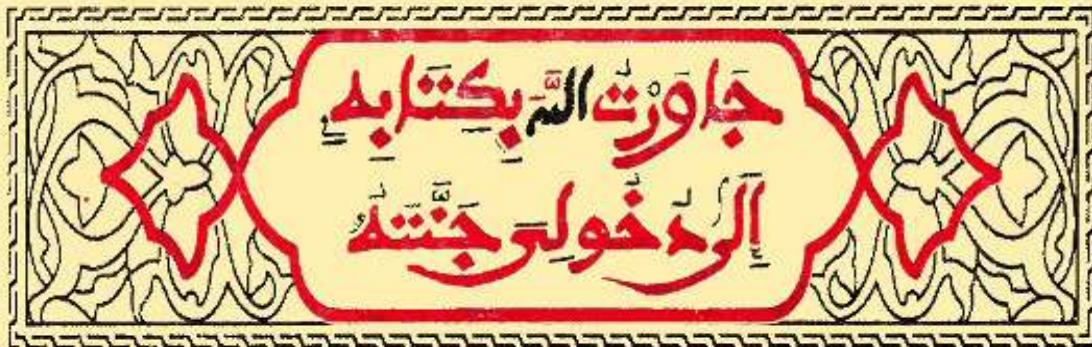 جَاوَرْتُ اللَّهَ بِكِتَابِهِ
إِلَى دُخُولِي جَنَّتَهُ